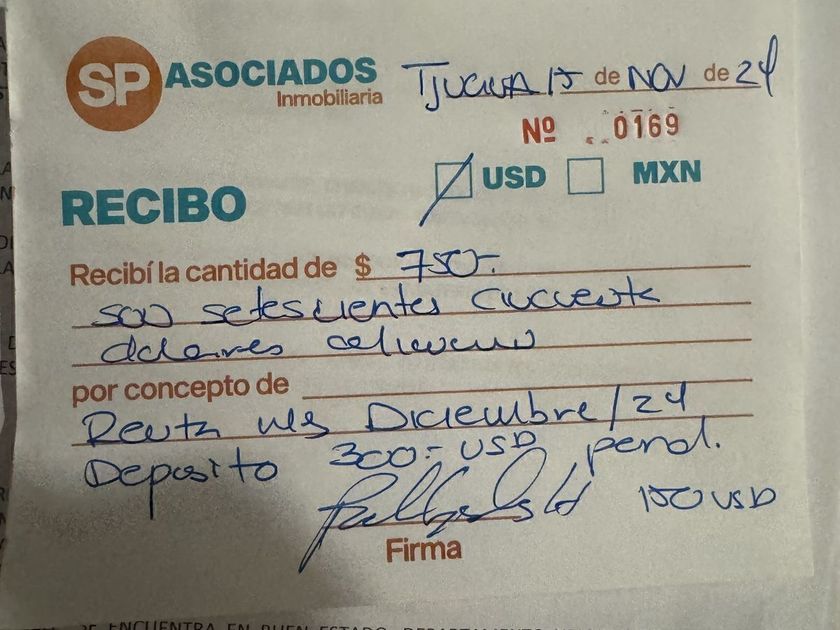 SP ASOCIADOS
Inmobiliaria
Tijuana 15 de NOV de 24
Nº 0169
USD MXN
RECIBO
Recibí la cantidad de $ 750-.
son setescientes cincuenta
dolares
por concepto de
Renta mes Diciembre/24
Deposito 300.- USD pend.
150 USD
Firma
SE ENCUENTRA EN BUEN ESTADO